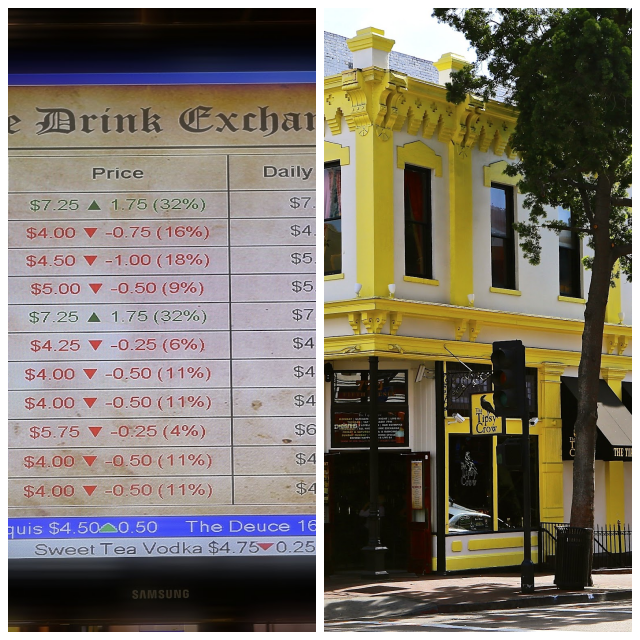 e Drink Exchan
Price Daily
$7.25 ▲ 1.75 (32%) $7.
$4.00 ▼ -0.75 (16%) $4.
$4.50 ▼ -1.00 (18%) $5.
$5.00 ▼ -0.50 (9%) $5
$7.25 ▲ 1.75 (32%) $7
$4.25 ▼ -0.25 (6%) $4
$4.00 ▼ -0.50 (11%) $4
$4.00 ▼ -0.50 (11%) $4
$5.75 ▼ -0.25 (4%) $6
$4.00 ▼ -0.50 (11%) $4
$4.00 ▼ -0.50 (11%) $4
quis $4.50▲0.50 The Deuce 16
Sweet Tea Vodka $4.75▼0.25
SAMSUNG
The
Tipsy
Crow
Crow
THE TI